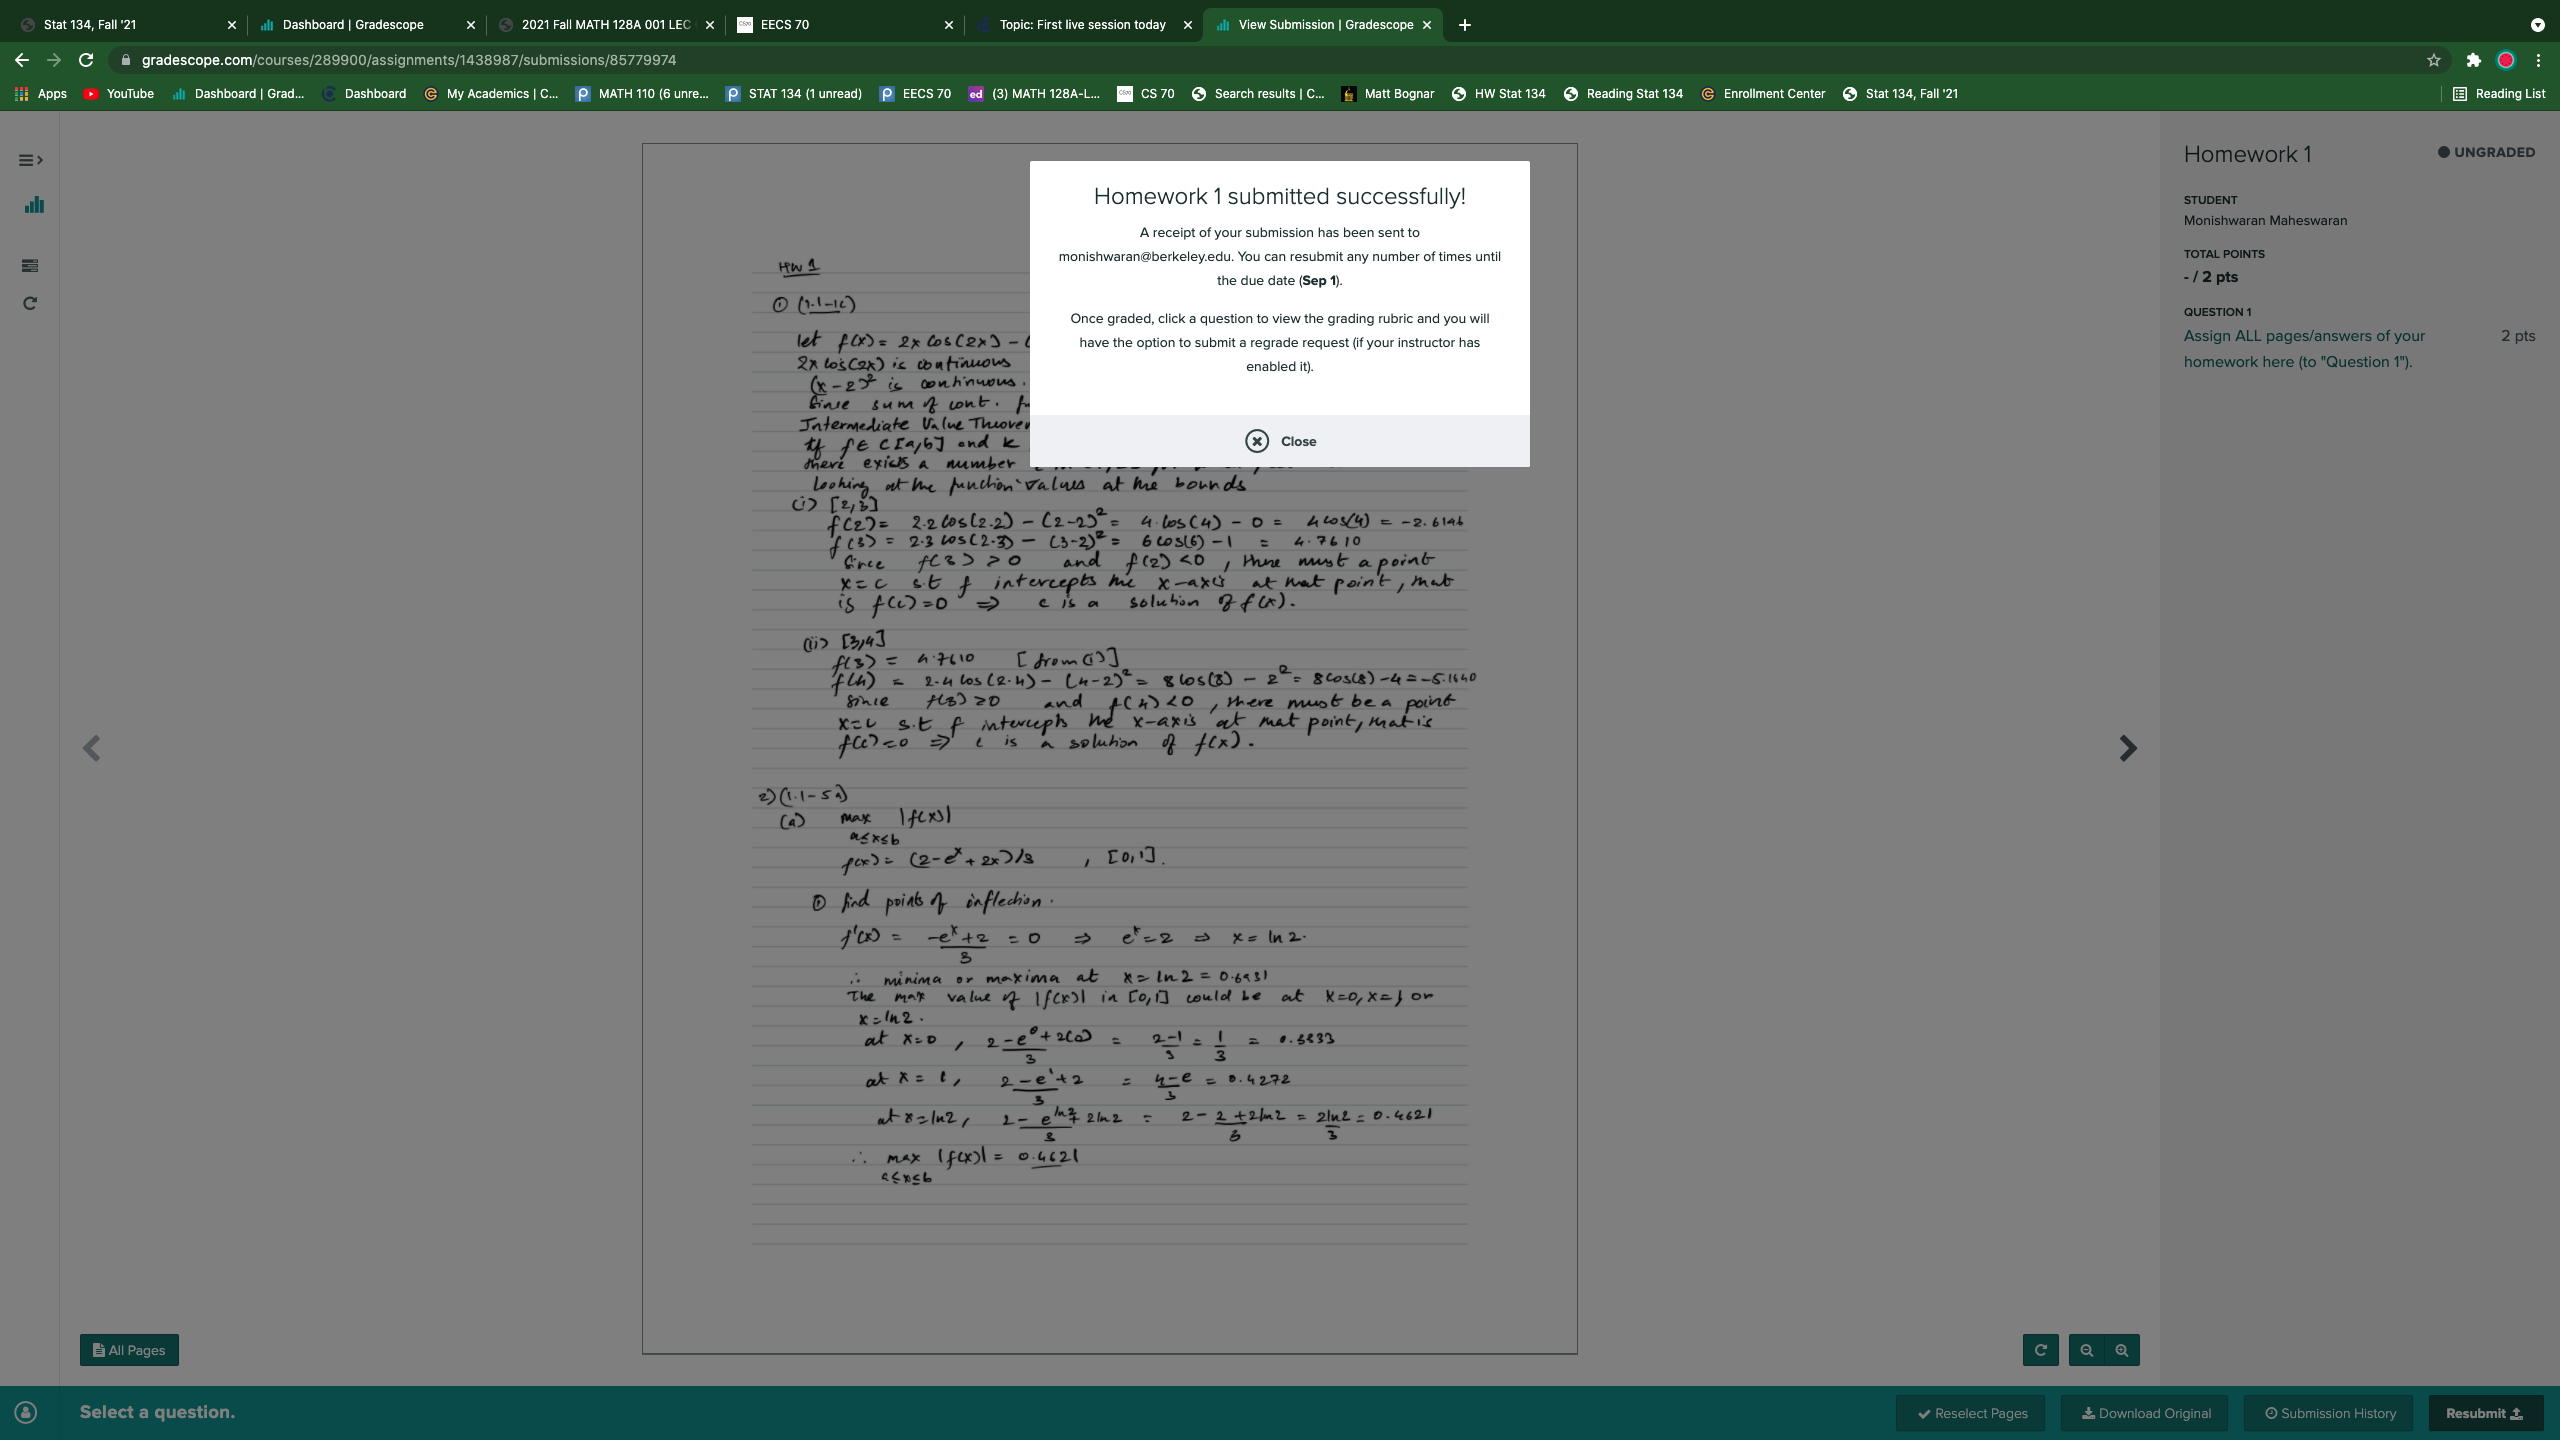 Stat 134, Fall '21
Dashboard | Gradescope
2021 Fall MATH 128A 001 LEC
EECS 70
Topic: First live session today
View Submission | Gradescope
gradescope.com/courses/289900/assignments/1438987/submissions/85779974
Apps YouTube Dashboard | Grad... Dashboard My Academics | C... MATH 110 (6 unre... STAT 134 (1 unread) EECS 70 (3) MATH 128A-L... CS 70 Search results | C... Matt Bognar HW Stat 134 Reading Stat 134 Enrollment Center Stat 134, Fall '21 Reading List
Homework 1 submitted successfully!
A receipt of your submission has been sent to
monishwaran@berkeley.edu. You can resubmit any number of times until
the due date (Sep 1).
Once graded, click a question to view the grading rubric and you will
have the option to submit a regrade request (if your instructor has
enabled it).
Close
HW 1
① (1.1-1c)
let f(x) = 2x cos(2x) - (
2x cos(2x) is continuous
(x-2)² is continuous.
Since sum of cont. fu
Intermediate Value Theorem
If f ∈ C[a,b] and k
there exists a number
Looking at the function values at the bounds
(i) [2,3]
f(2) = 2.2 cos(2.2) - (2-2)² = 4.cos(4) - 0 = 4cos(4) = -2.6146
f(3) = 2.3 cos(2.3) - (3-2)² = 6cos(6) - 1 = 4.7610
Since f(3) > 0 and f(2) < 0, there must a point
x=c s.t f intercepts the x-axis at that point, that
is f(c)=0 ⇒ c is a solution of f(x).
(ii) [3,4]
f(3) = 4.7610 [from (i)]
f(4) = 2.4 cos(2.4) - (4-2)² = 8cos(8) - 2² = 8cos(8) - 4 = -5.1640
Since f(3) ≥ 0 and f(4) < 0, there must be a point
x=c s.t f intercepts the x-axis at that point, that is
f(c)=0 ⇒ c is a solution of f(x).
2) (1.1-5a)
(a) max |f(x)|
a≤x≤b
f(x) = (2-eˣ+2x)/3 , [0,1].
① find points of inflection.
f'(x) = (-eˣ+2)/3 = 0 ⇒ eˣ=2 ⇒ x = ln 2.
∴ minima or maxima at x = ln 2 = 0.6931
The max value of |f(x)| in [0,1] could be at x=0, x=1 or
x=ln2.
at x=0, (2-e⁰+2(0))/3 = (2-1)/3 = 1/3 = 0.3333
at x=1, (2-e¹+2)/3 = (4-e)/3 = 0.4272
at x=ln2, (2-e^ln2+2ln2)/3 = (2-2+2ln2)/3 = 2ln2/3 = 0.4621
∴ max |f(x)| = 0.4621
a≤x≤b
Homework 1
UNGRADED
STUDENT
Monishwaran Maheswaran
TOTAL POINTS
- / 2 pts
QUESTION 1
Assign ALL pages/answers of your
homework here (to "Question 1").
2 pts
All Pages
Select a question.
Reselect Pages
Download Original
Submission History
Resubmit